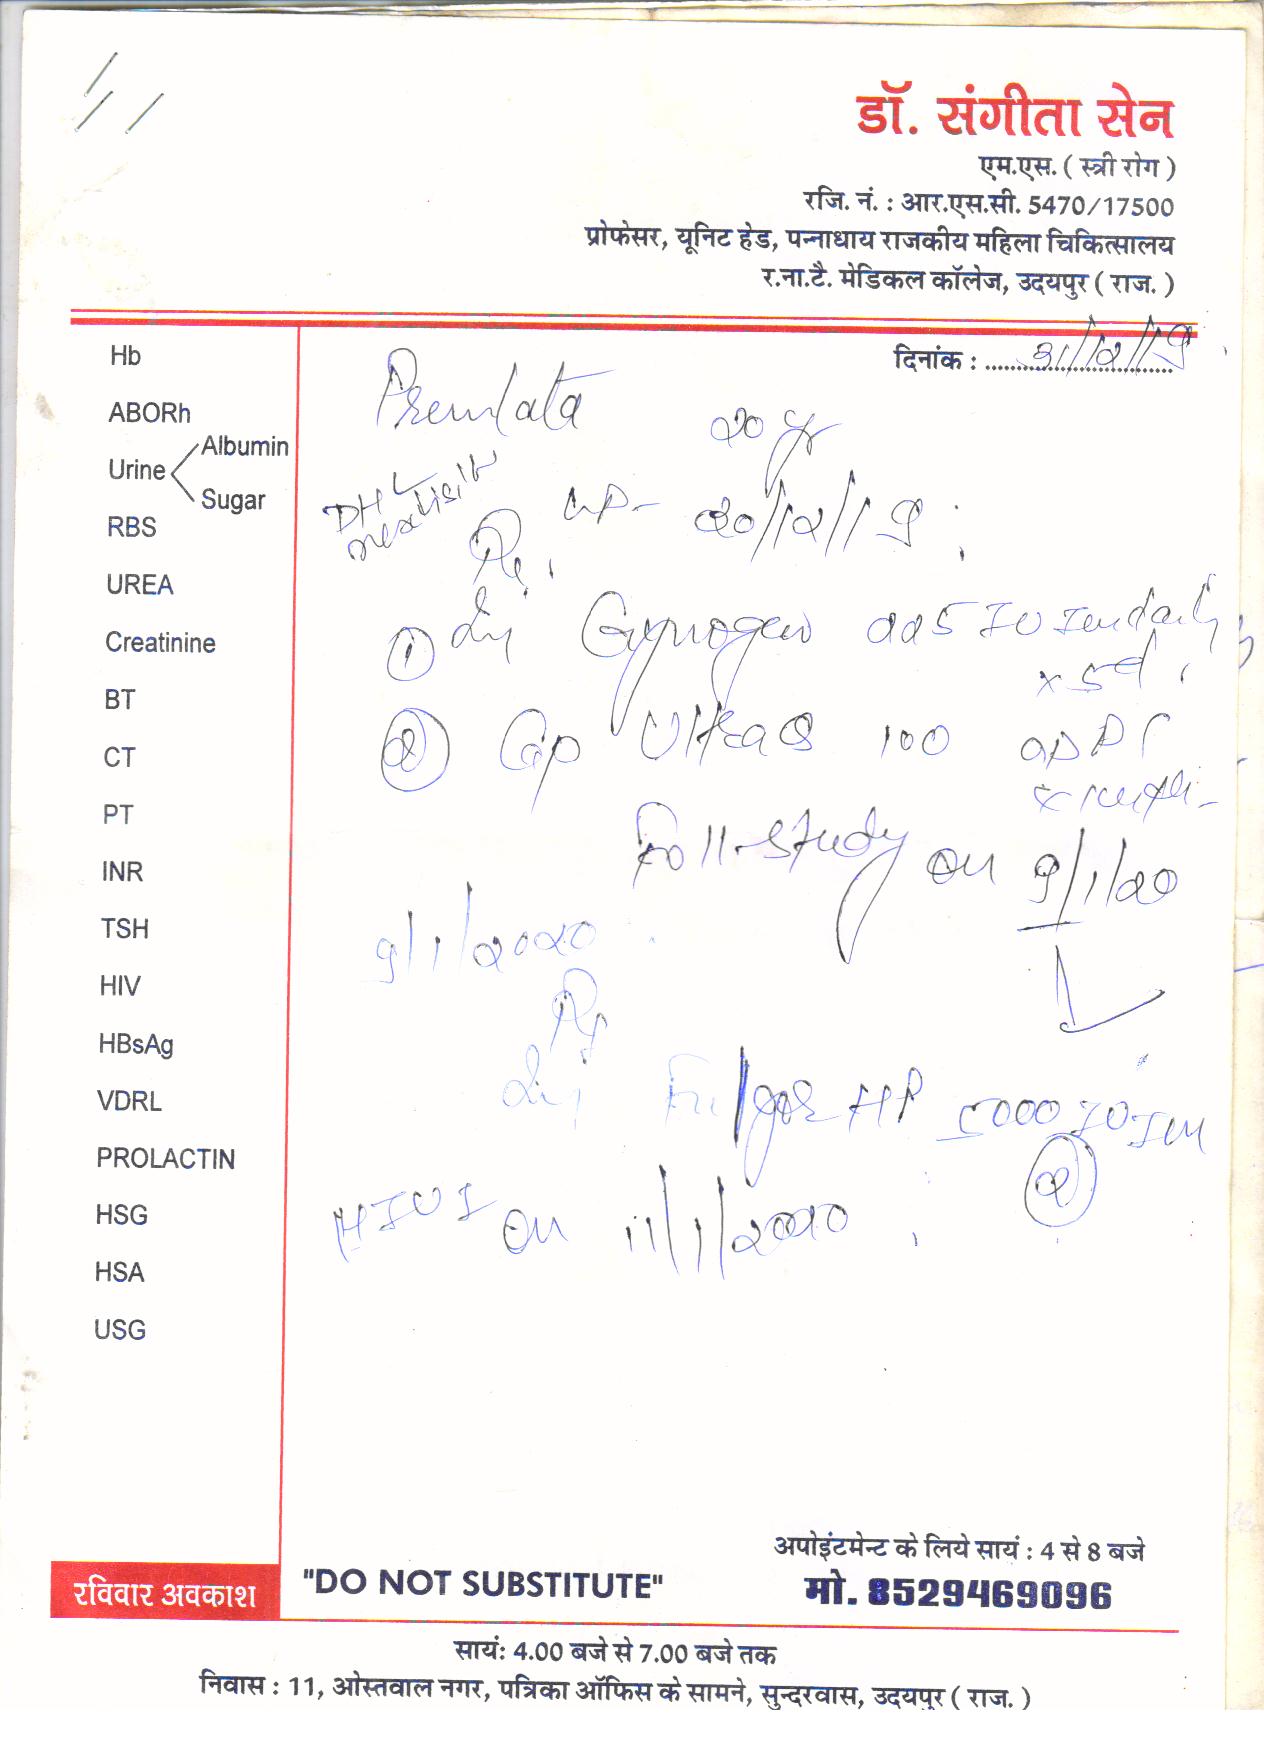 डॉ. संगीता सेन
एम.एस. ( स्त्री रोग )
रजि. नं. : आर.एस.सी. 5470/17500
प्रोफेसर, यूनिट हेड, पन्नाधाय राजकीय महिला चिकित्सालय
र.ना.टै. मेडिकल कॉलेज, उदयपुर ( राज. )
दिनांक : 31/12/19
Hb
ABORh
Urine Albumin
Sugar
RBS
UREA
Creatinine
BT
CT
PT
INR
TSH
HIV
HBsAg
VDRL
PROLACTIN
HSG
HSA
USG
Premlata
20 yr
DHL
next visit
LMP- 20/12/19
Rx
① Inj Gynogen 225 IU Im daily
x 5d
② Cap Ultra Q 100 OD
Foll. study on 9/1/20
9/1/2020
Rx
Inj HP 5000 IU Im
②
HIUI on 11/1/2020
अपोइंटमेन्ट के लिये सायं : 4 से 8 बजे
रविवार अवकाश
"DO NOT SUBSTITUTE"
मो. 8529469096
सायं: 4.00 बजे से 7.00 बजे तक
निवास : 11, ओस्तवाल नगर, पत्रिका ऑफिस के सामने, सुन्दरवास, उदयपुर ( राज. )